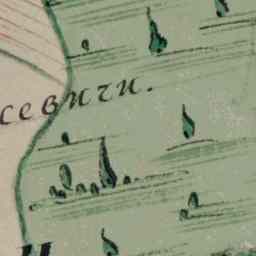 севичи.